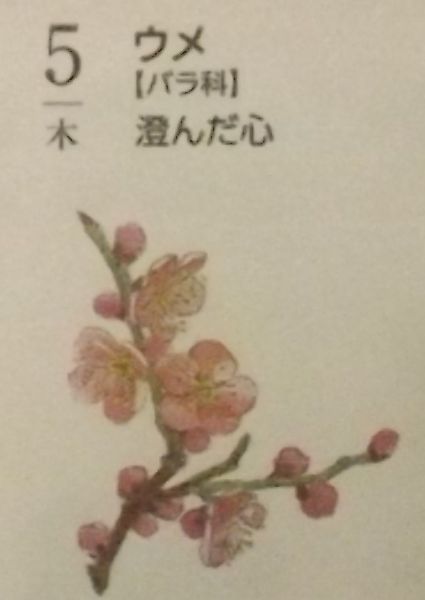 5
木
ウメ
【バラ科】
澄んだ心